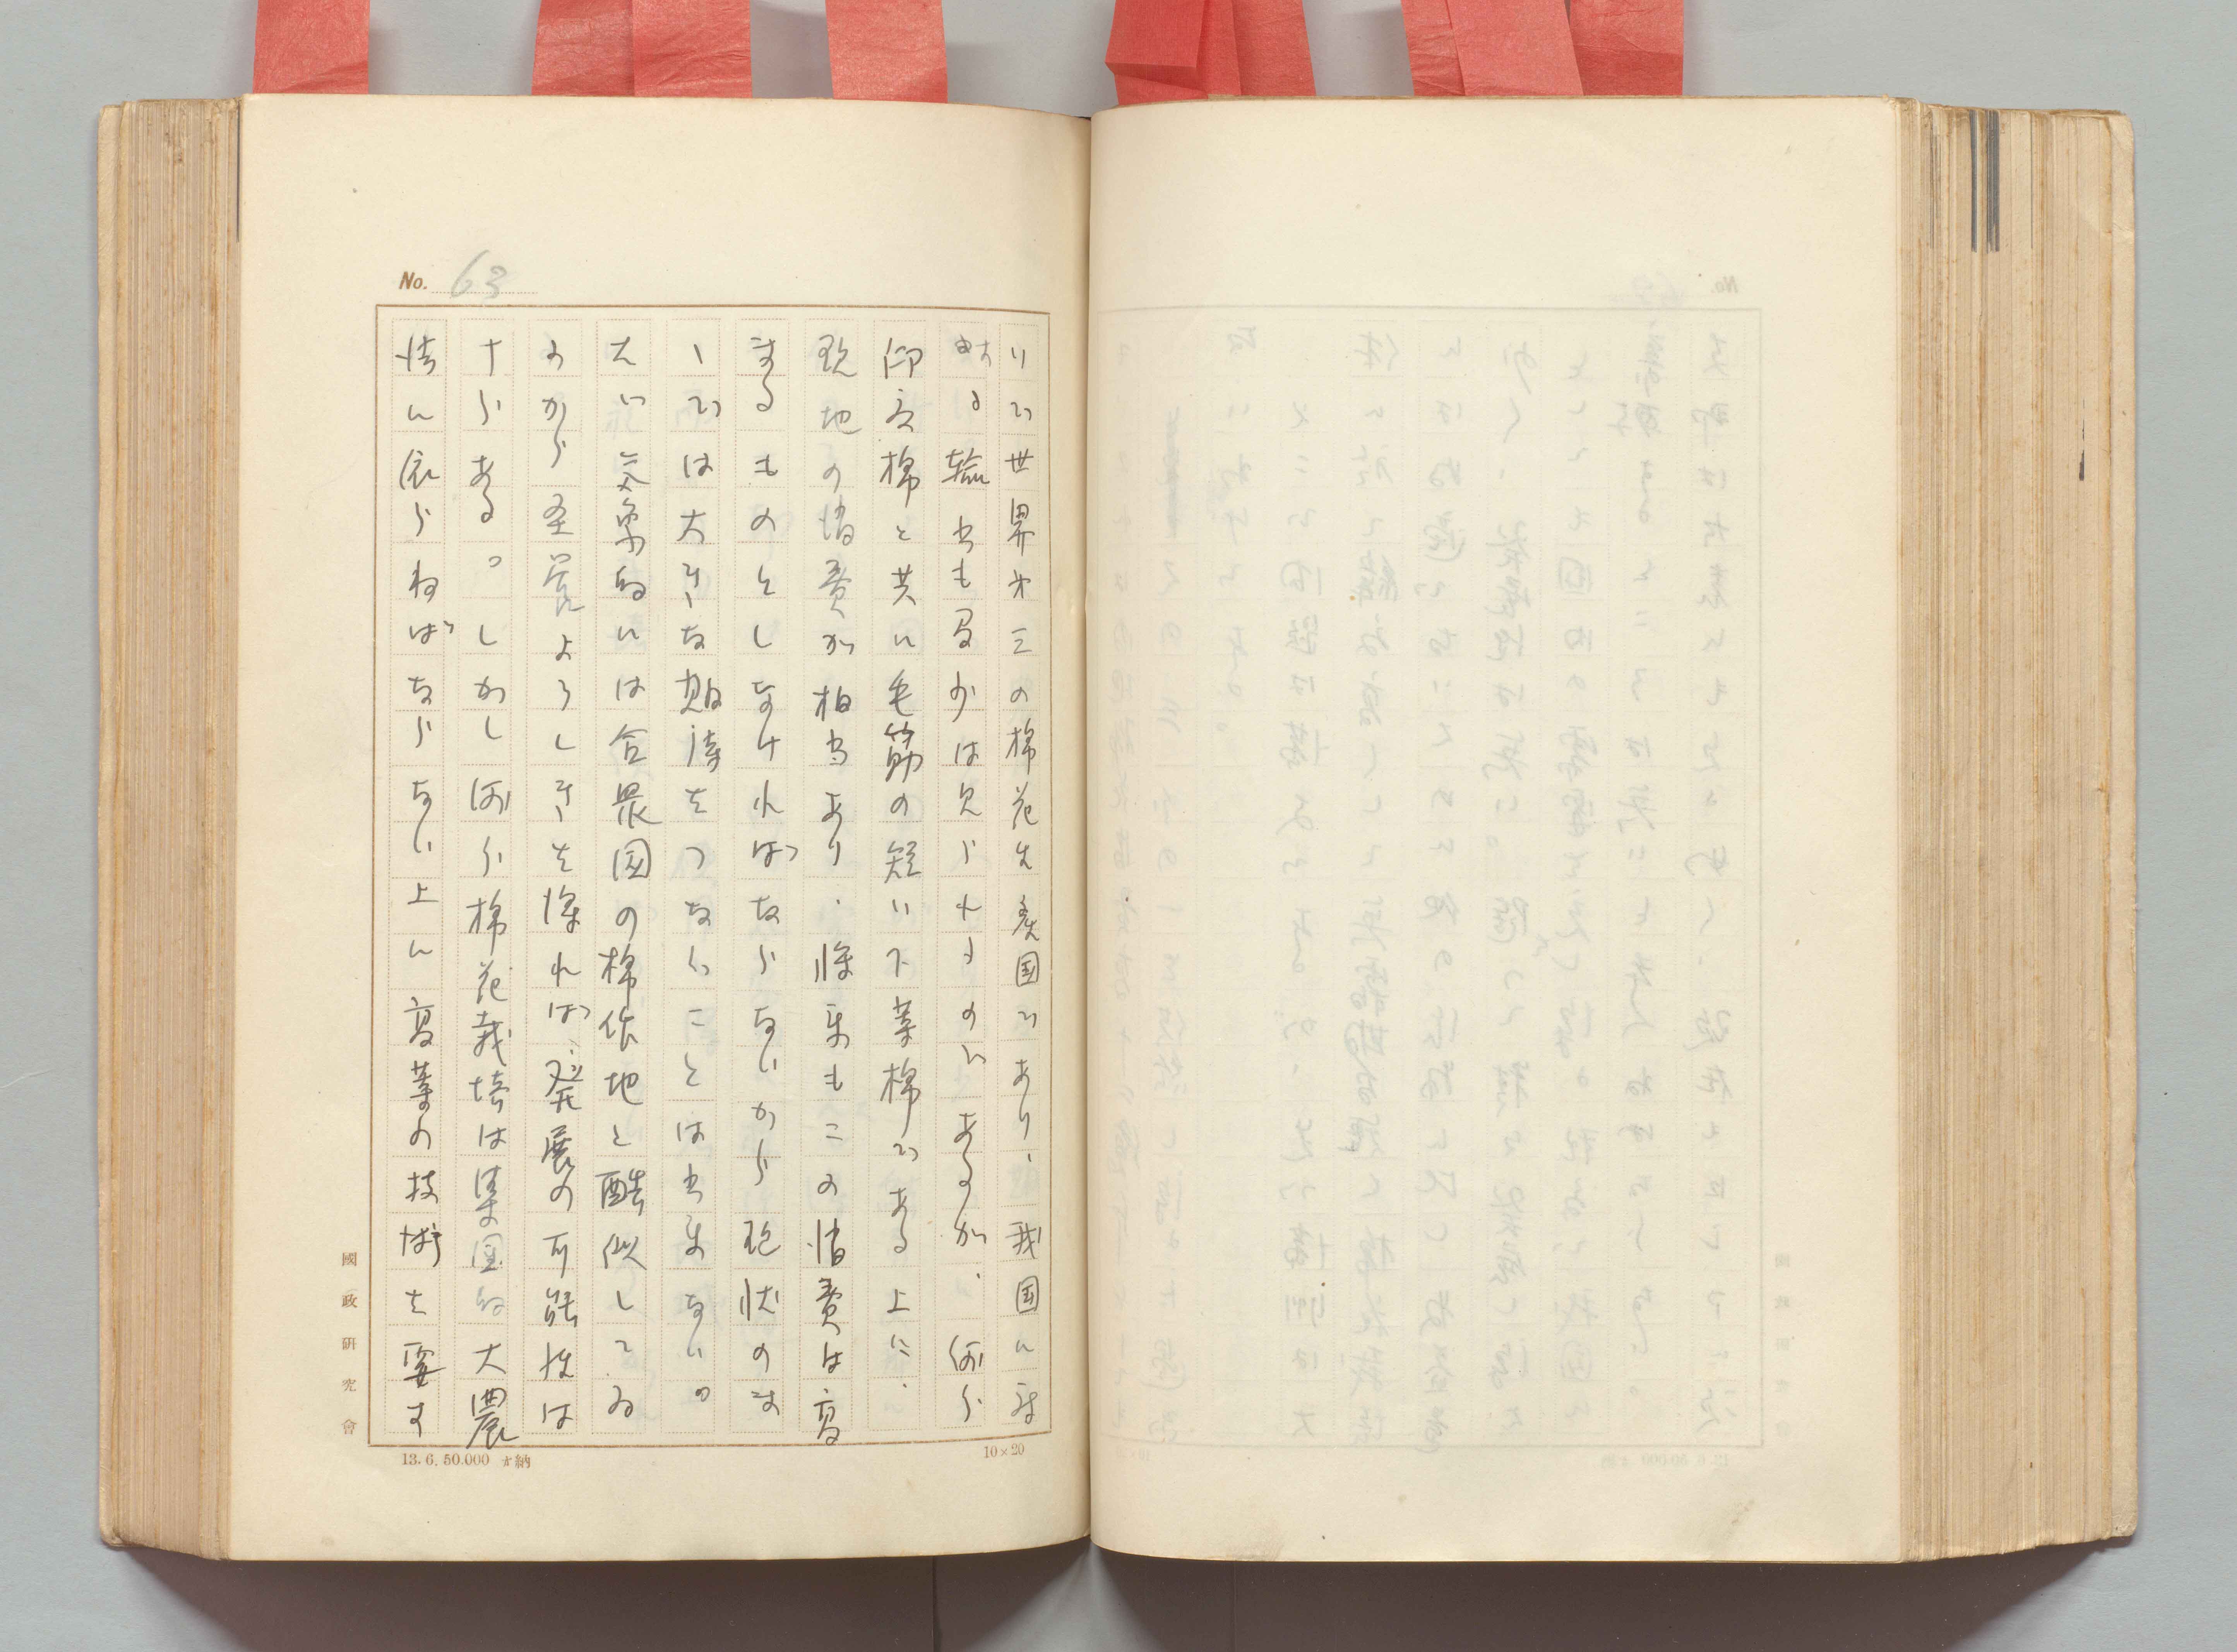 No. 63
りで世界第三の棉花生産国であり、我国に対
する輸出も多少は見られるのであるが、何分
印度棉と共に毛筋の短い下等棉である上に、
現地の消費が相当あり、将来もこの消費は高
まるものとしなければならないから現状のま
ゝでは大きな期待をつなぐことは出来ない。
たゞ気象的には合衆国の棉作地と酷似してゐ
るから経営よろしきを得れば、発展の可能性は
十分ある。しかし何分棉花栽培は集団的大農
法に依らねばならない上に高等の技術を要す
國政研究會
13.6.50.000 納
10×20